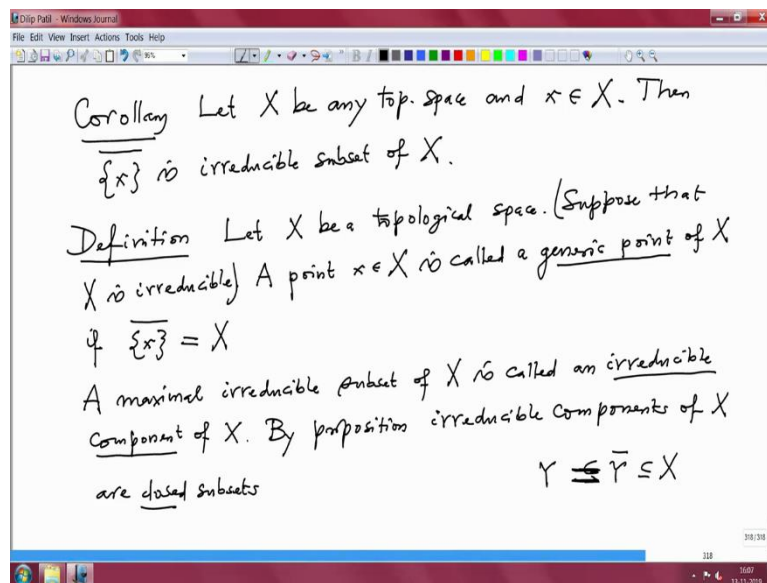 Dilip Patil - Windows Journal
File Edit View Insert Actions Tools Help
Corollary Let X be any top. space and x ∈ X. Then
\overline{{x}} is irreducible subset of X.
Definition Let X be a topological space. (Suppose that
X is irreducible) A point x ∈ X is called a generic point of X
if \overline{{x}} = X
A maximal irreducible subset of X is called an irreducible
component of X. By proposition irreducible components of X
are closed subsets
Y ⊆ \overline{Y} ⊆ X
318/318
318
16:07
13-11-2019